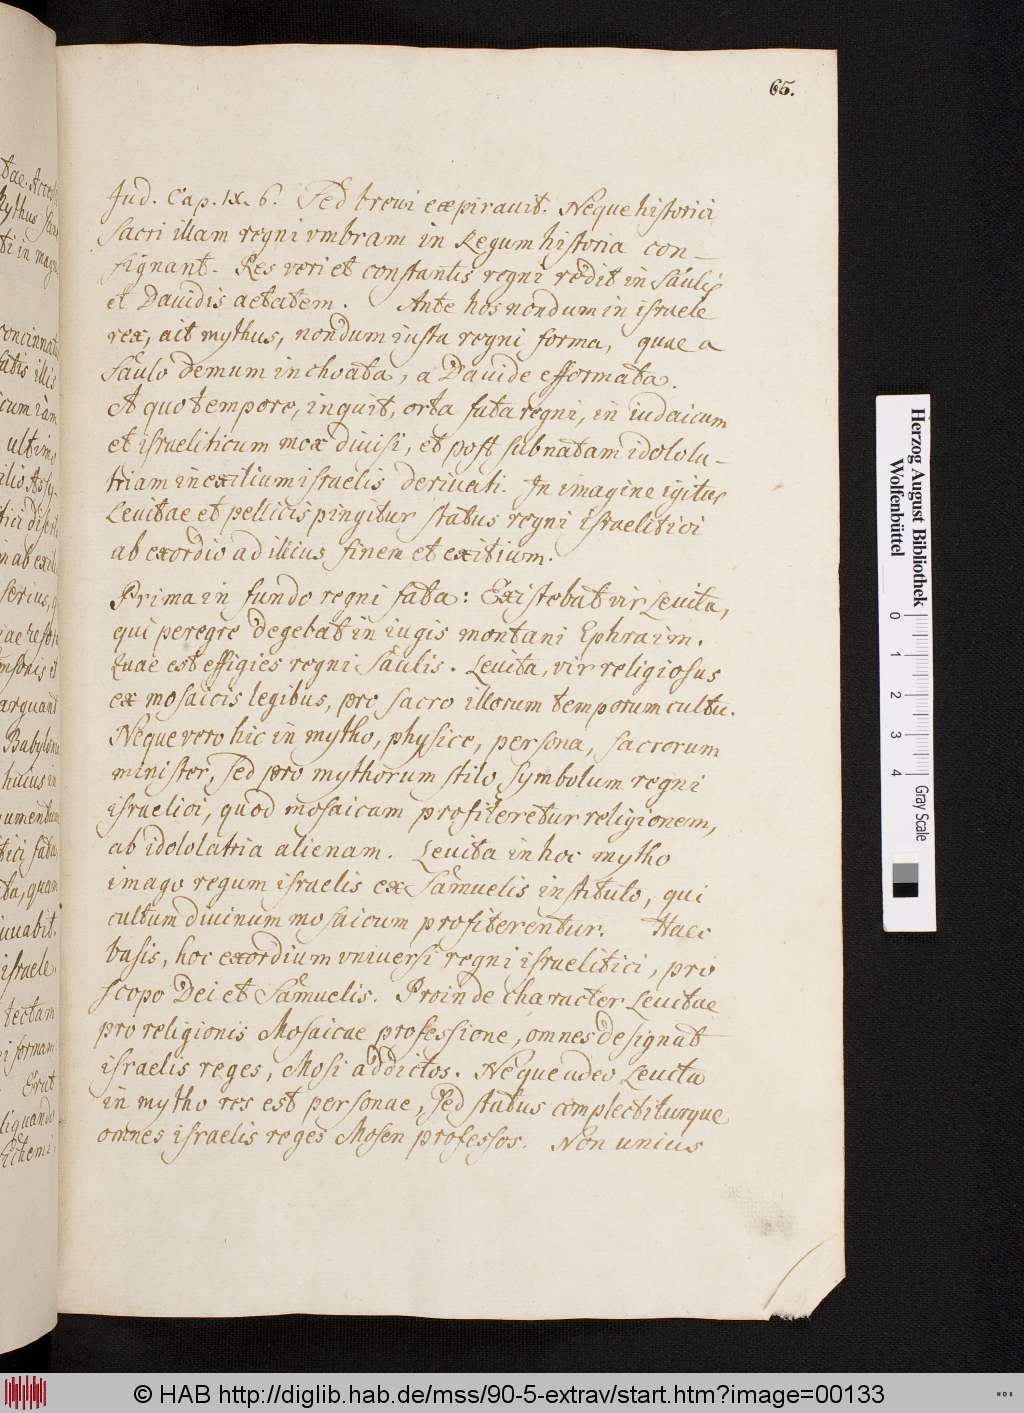 65.
Jud. Cap. IX. 6. Sed brevi expirauit. Neque historici
sacri illam regni vmbram in Regum historia con-
signant. Res veri et constantis regni redit in Saulis
et Dauidis aetatem. Ante hos nondum in israele
rex, ait mythus, nondum iusta regni forma, quae a
Saulo demum inchoata, a Dauide efformata.
A quo tempore, inquit, orta fata regni, in iudaicum
et israeliticum mox diuisi, et post subnatam idolola-
triam in exilium israelis deriuati. In imagine igitur
Leuitae et pellicis pingitur status regni israelitici
ab exordio ad illius finem et exitium.
Prima in fundo regni fata: Existebat vir Leuita,
qui peregre degebat in iugis montani Ephraim.
Quae est effigies regni Saulis. Leuita, vir religiosus
ex mosaicis legibus, pro sacro illorum temporum cultu.
Neque vero hic in mytho, physice, persona, sacrorum
minister, sed pro mythorum stilo, symbolum regni
israelici, quod mosaicam profiteretur religionem,
ab idololatria alienam. Leuita in hoc mytho
imago regum israelis ex Samuelis instituto, qui
cultum diuinum mosaicum profiterentur. Haec
basis, hoc exordium vniuersi regni israelitici, pro
scopo Dei et Samuelis. Proinde character Leuitae
pro religionis Mosaicae professione, omnes designat
israelis reges, Mosi addictos. Neque adeo Leuita
in mytho res est personae, sed status complectiturque
omnes israelis reges Mosen professos. Non unius
Herzog August Bibliothek
Wolfenbüttel
0 1 2 3 4
Gray Scale
© HAB http://diglib.hab.de/mss/90-5-extrav/start.htm?image=00133